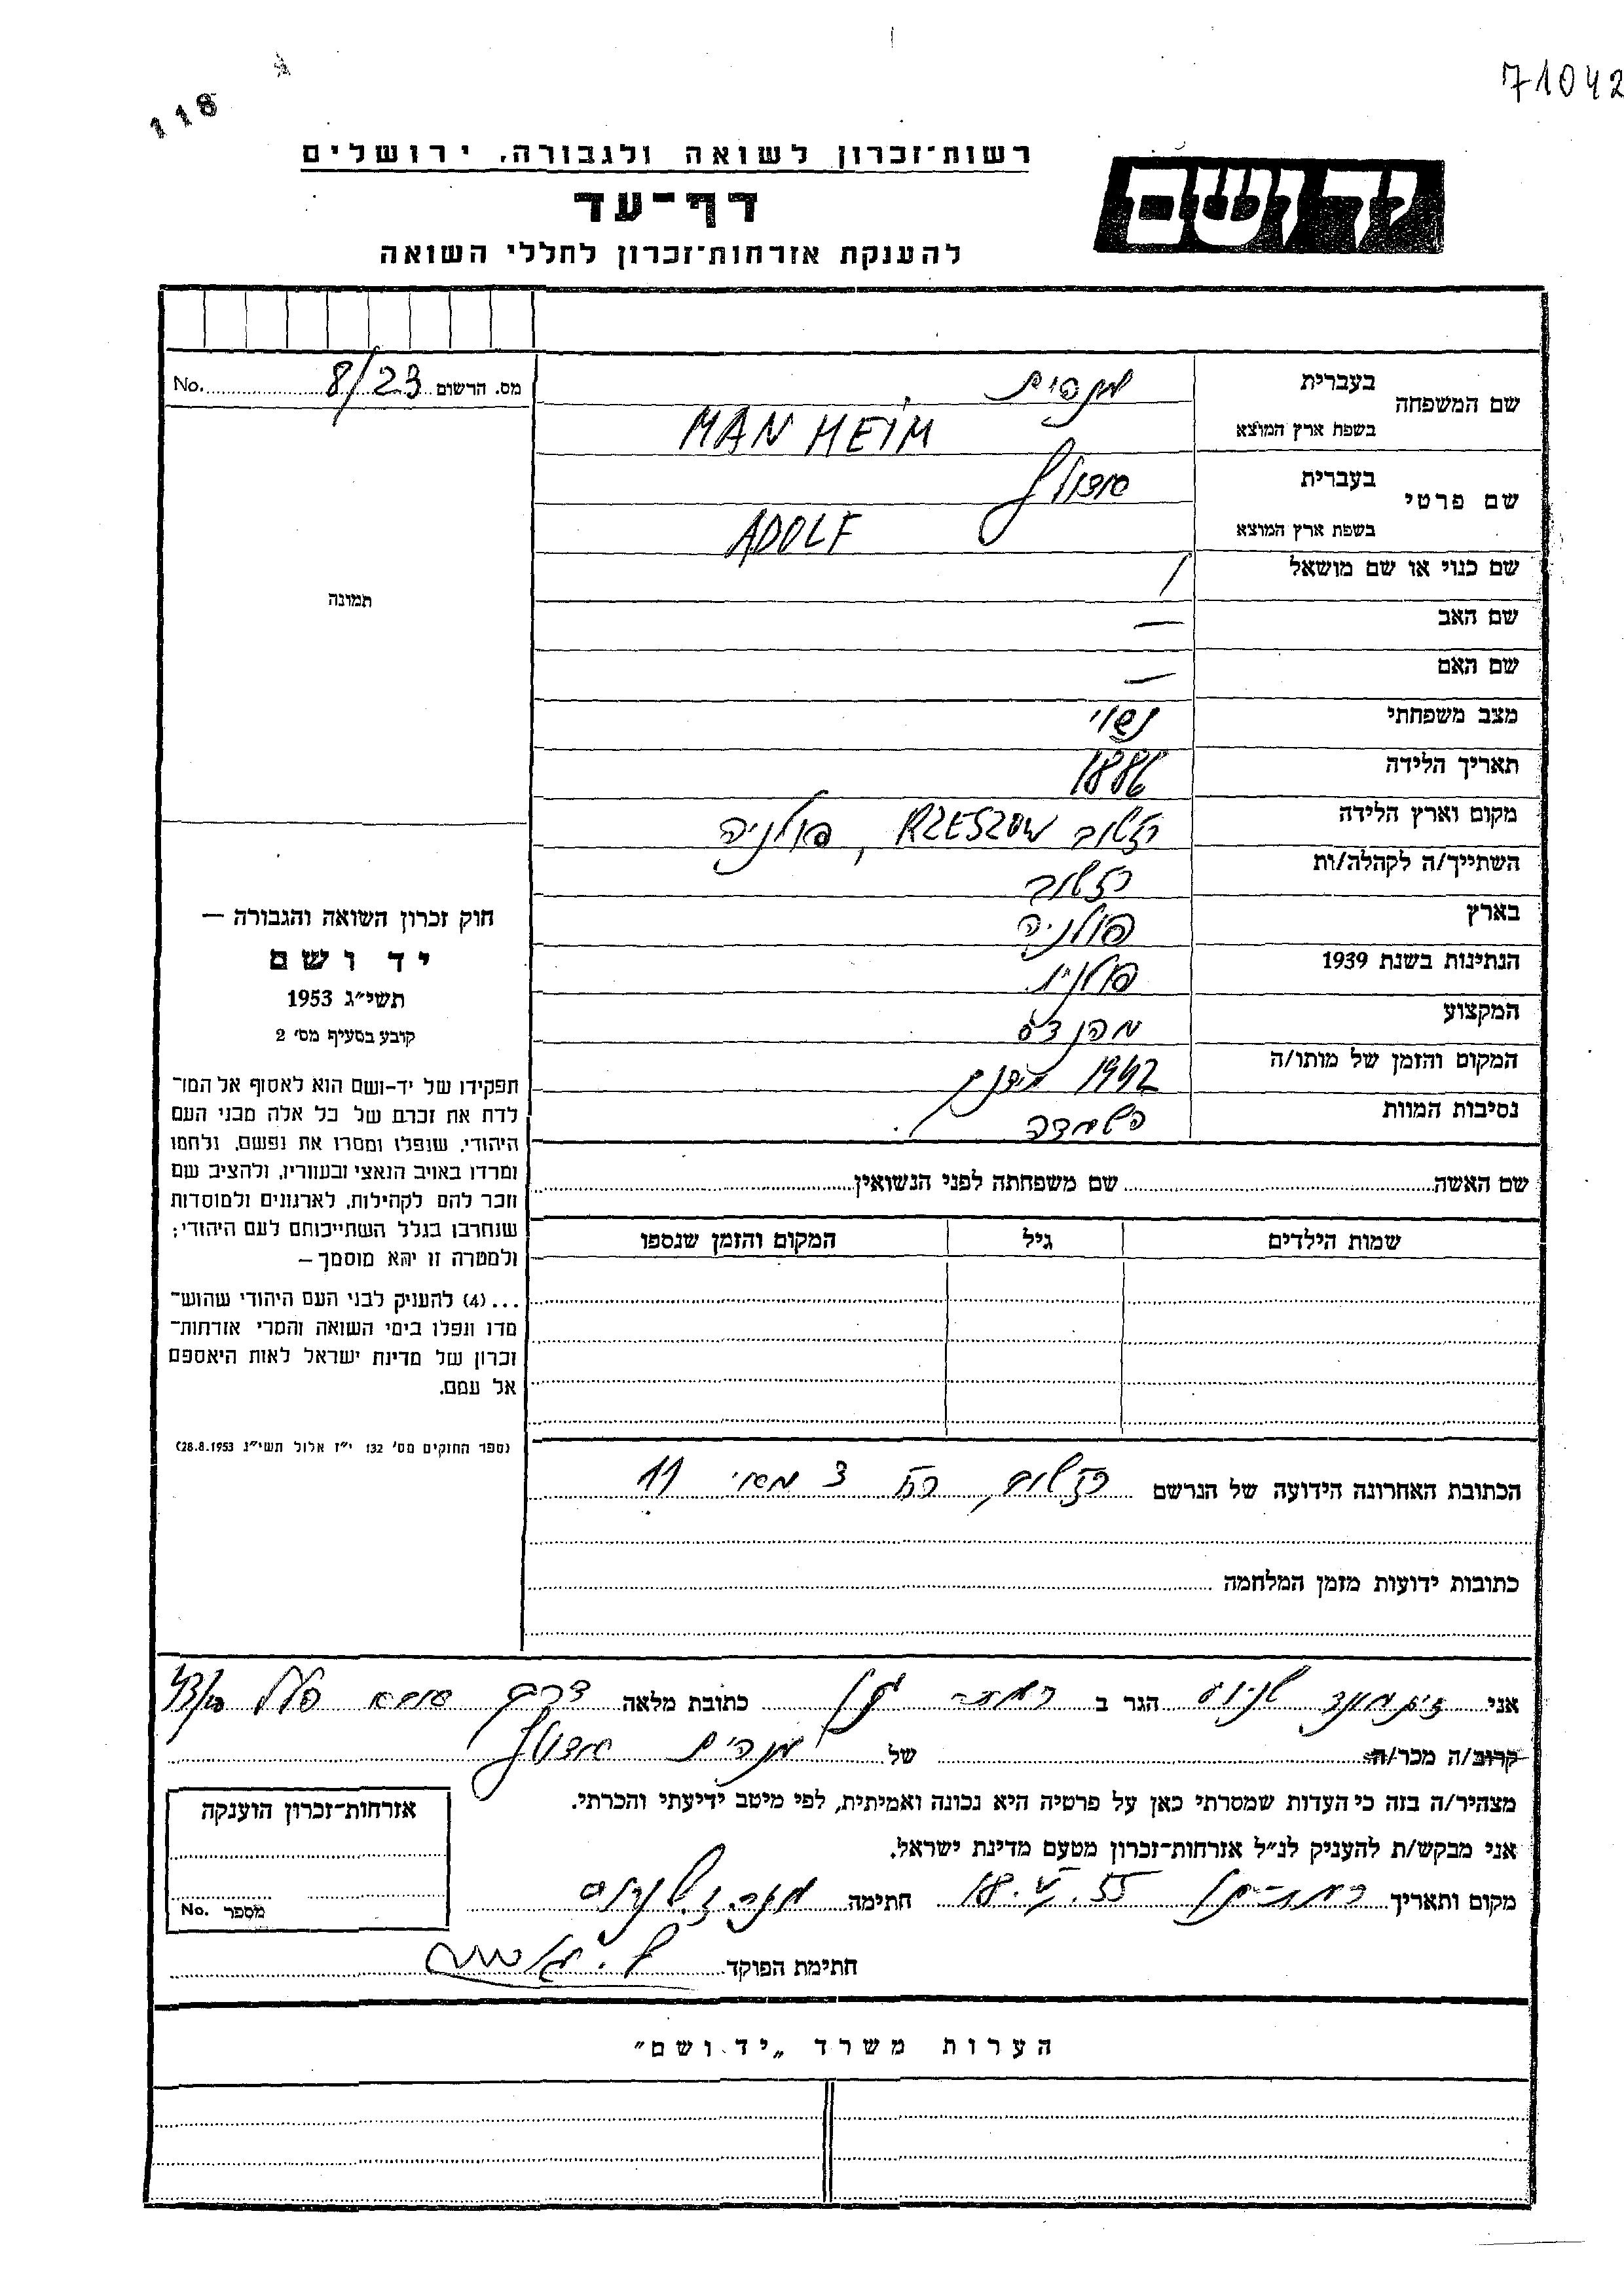 71042
118
רשות־זכרון לשואה ולגבורה, ירושלים
יד ושם
דף־עד
להענקת אזרחות־זכרון לחללי השואה
מס. הרשום 8/23 No.
שם המשפחה בעברית מנהים
בשפת ארץ המוצא MANHEIM
שם פרטי בעברית אדולף
בשפת ארץ המוצא ADOLF
שם כנוי או שם מושאל /
שם האב —
שם האם —
מצב משפחתי נשוי
תאריך הלידה 1886
מקום וארץ הלידה רזשוב RZESZOW, פולניה
השתייך/ה לקהלה/ות רזשוב
בארץ פולניה
הנתינות בשנת 1939 פולנית
המקצוע מהנדס
המקום והזמן של מותו/ה 1942
נסיבות המוות השמדה
תמונה
חוק זכרון השואה והגבורה —
יד ושם
תשי״ג 1953
קובע בסעיף מס׳ 2
תפקידו של יד-ושם הוא לאסוף אל המו־
לדת את זכרם של כל אלה מבני העם
היהודי, שנפלו ומסרו את נפשם, נלחמו
ומרדו באויב הנאצי ובעוזריו, ולהציב שם
וזכר להם לקהילות, לארגונים ולמוסדות
שנחרבו בגלל השתייכותם לעם היהודי;
ולמטרה זו יהא מוסמך —
...(4) להעניק לבני העם היהודי שהוש־
מדו ונפלו בימי השואה והמרי אזרחות־
זכרון של מדינת ישראל לאות היאספם
אל עמם.
(ספר החוקים מס׳ 132 י״ז אלול תשי״ג 28.8.1953)
שם האשה שם משפחתה לפני הנשואין
שמות הילדים גיל המקום והזמן שנספו
הכתובת האחרונה הידועה של הנרשם רזשוב, רח 3 מאי 11
כתובות ידועות מזמן המלחמה
אני זיגמונד הגר ב רמת גן כתובת מלאה דרך אבא הלל
קרוב/ה מכר/ה של מנהים אדולף
מצהיר/ה בזה כי העדות שמסרתי כאן על פרטיה היא נכונה ואמיתית, לפי מיטב ידיעתי והכרתי.
אני מבקש/ת להעניק לנ״ל אזרחות־זכרון מטעם מדינת ישראל.
מקום ותאריך רמת-גן 18.V.55 חתימה
חתימת הפוקד
אזרחות־זכרון הוענקה
מספר No.
הערות משרד „יד ושם״